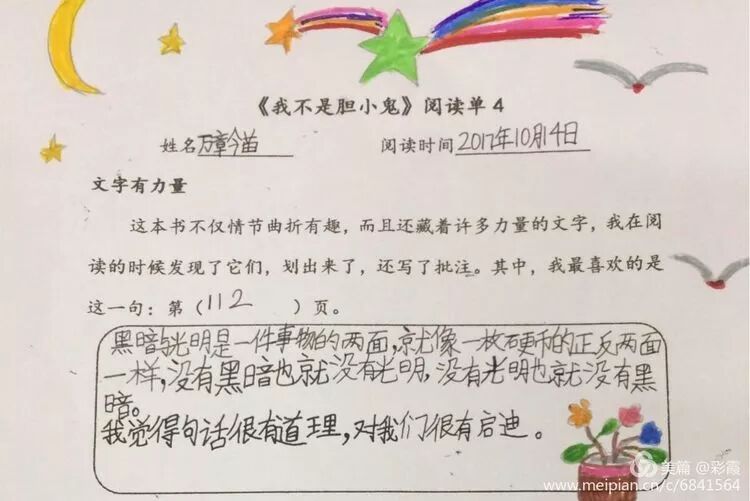 《我不是胆小鬼》阅读单4
姓名 万章今苗 阅读时间 2017年10月14日
文字有力量
这本书不仅情节曲折有趣，而且还藏着许多力量的文字，我在阅
读的时候发现了它们，划出来了，还写了批注。其中，我最喜欢的是
这一句：第（112）页。
黑暗与光明是一件事物的两面，就像一枚硬币的正反两面
一样，没有黑暗也就没有光明，没有光明也就没有黑
暗。
我觉得句话很有道理，对我们很有启迪。
美篇 @彩霞
www.meipian.cn/c/6841564